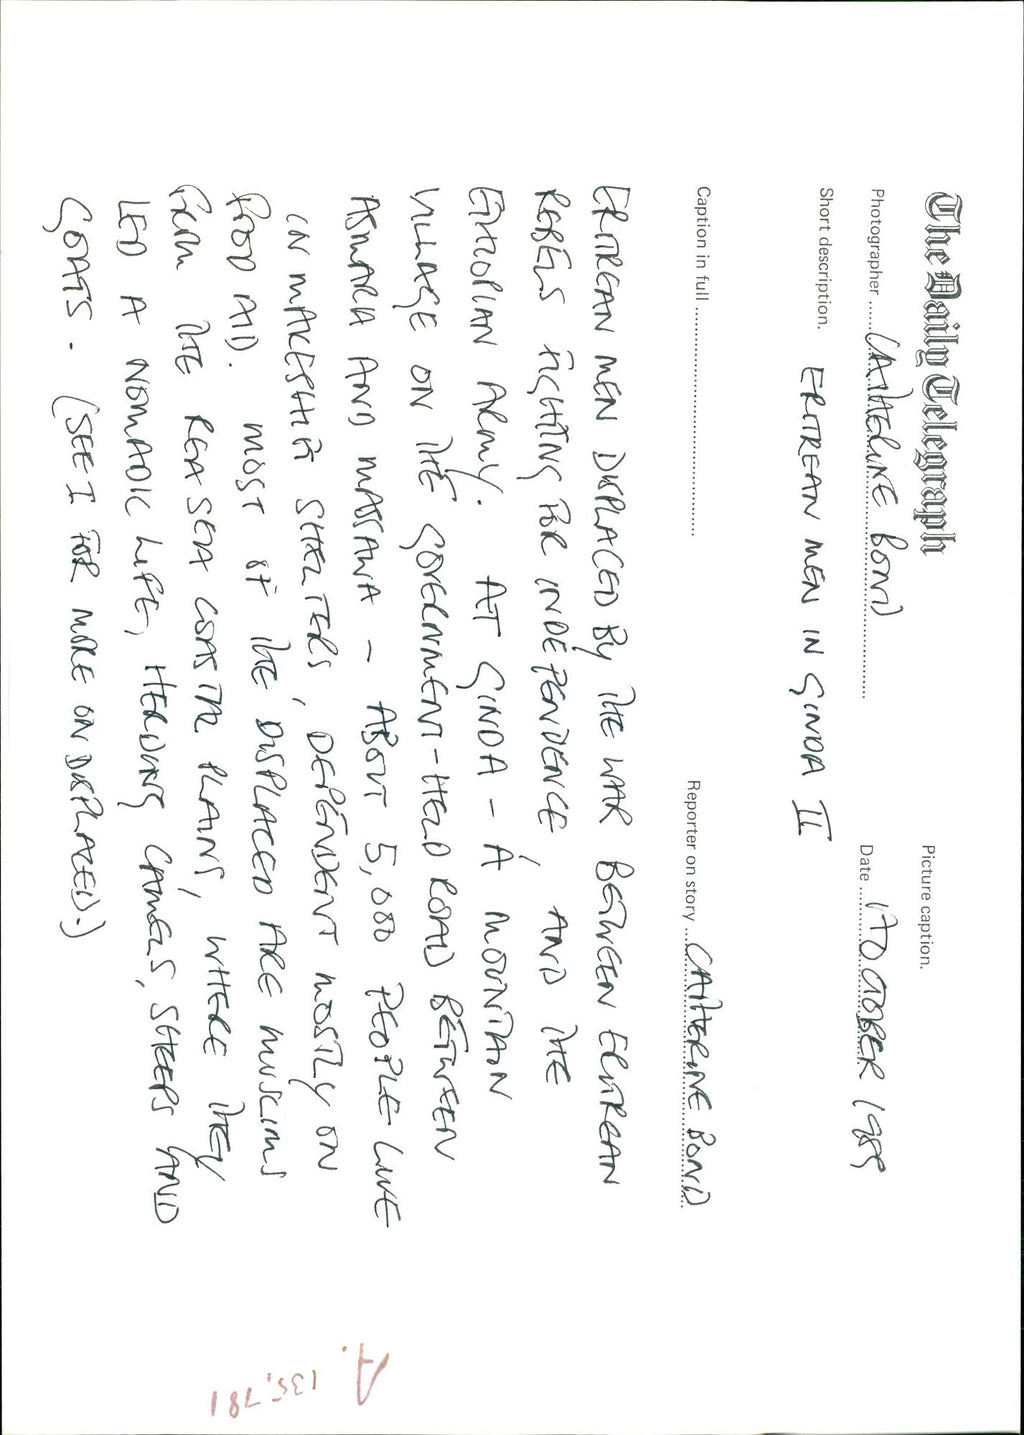 The Daily Telegraph
Picture caption.
Photographer ...... CATHERINE BOND
Date ...... 17 OCTOBER 1989
Short description. ERITREAN MEN IN GINDA II
Caption in full
Reporter on story ... CATHERINE BOND
ERITREAN MEN DISPLACED BY THE WAR BETWEEN ERITREAN
REBELS FIGHTING FOR INDEPENDENCE, AND THE
ETHIOPIAN ARMY. AT GINDA - A MOUNTAIN
VILLAGE ON THE GOVERNMENT-HELD ROAD BETWEEN
ASMARA AND MASSAWA - ABOUT 5,000 PEOPLE LIVE
IN MAKESHIFT SHELTERS, DEPENDENT MOSTLY ON
FOOD AID. MOST OF THE DISPLACED ARE MUSLIMS
FROM THE REA SEA COASTAL PLAINS, WHERE THEY
LED A NOMADIC LIFE, HERDING CAMELS, SHEEPS AND
GOATS. (SEE I FOR MORE ON DISPLACED.)
A.
135,781